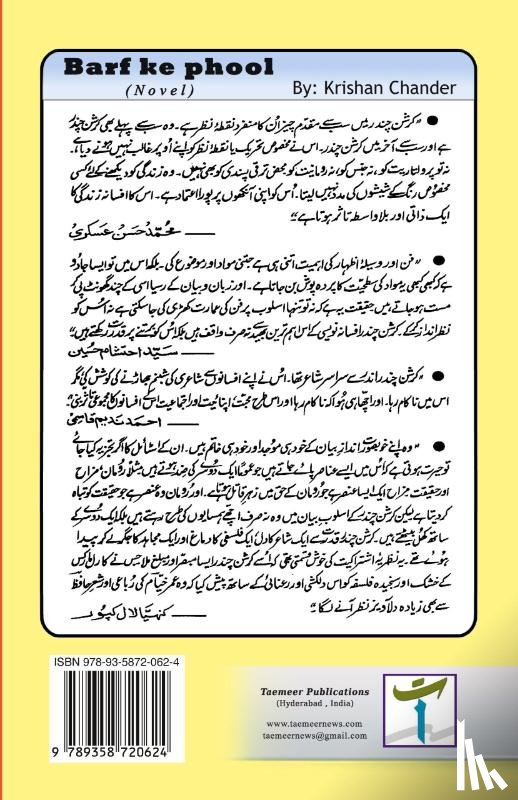 Barf ke phool
(Novel)
By: Krishan Chander
● "کرشن چندر میں سب سے مقدم چیز اُن کا منفرد نقطۂ نظر ہے۔ وہ سب سے پہلے بھی کرشن چندر
ہے اور سب سے آخر میں کرشن چندر۔ اس نے مخصوص تحریک یا نقطۂ نظر کو اپنے اُوپر غالب نہیں ہونے دیا ہے۔
نہ تو پرولتاریت کو، نہ جنس کو، نہ رومانیت کو، محض ترقی پسندی کو بھی نہیں۔ وہ زندگی کو دیکھنے کے لئے کسی
مخصوص رنگ کے شیشوں کی مدد نہیں لیتا۔ اُس کو اپنی آنکھوں پر پورا اعتماد ہے۔ اس کا افسانہ زندگی کا
ایک ذاتی اور بلا واسطہ تاثر ہوتا ہے"
—— محمد حسن عسکری
● "فن اور وسیلۂ اظہار کی اہمیت اتنی ہی ہے جتنی مواد اور موضوع کی۔ بلکہ اس میں تو ایسا جادو
ہے کہ کبھی کبھی یہ مواد کی سطحیت کا پردہ پوش بن جاتا ہے۔ اور زبان و بیان کے رسیا اسی کے چند گھونٹ پی کر
مست ہو جاتے ہیں حقیقت یہ ہے کہ نہ تو تنہا اسلوب پر فن کی عمارت کھڑی کی جا سکتی ہے نہ اُس کو
نظر انداز کر کے۔ کرشن چندر افسانہ نویسی کے اس اہم ترین بھید سے نہ صرف واقف ہیں بلکہ اُس کو برتنے پر قدرت رکھتے ہیں"
—— سید احتشام حسین
● "کرشن چندر اندر سے سراسر شاعر تھا۔ اس نے اپنے افسانوں سے شاعری کی شبنم جھاڑنے کی کوشش کی مگر
اس میں ناکام رہا۔ اور اچھا ہی ہوا کہ ناکام رہا اور اس طرح محبت اپنائیت اور اجتماعیت اُس کے افسانوں کا مجموعی تاثر بنی"
—— احمد ندیم قاسمی
● "وہ اپنے خوبصورت انداز بیان کے خود ہی موجد اور خود ہی خاتم ہیں۔ ان کے اسٹائل کا اگر تجزیہ کیا جائے
تو حیرت ہوتی ہے کہ اُس میں ایسے عناصر پائے جاتے ہیں جو عموماً ایک دوسرے کی ضد ہوتے ہیں مثلاً رومان، مزاح
اور حقیقت۔ مزاح ایک ایسا عنصر ہے جو رومان کے حق میں زہر قاتل ہے۔ اور رومان وہ عنصر ہے جو حقیقت کو تباہ
کر دیتا ہے لیکن کرشن چندر کے اسلوب بیان میں وہ نہ صرف اچھے ہمسایوں کی طرح رہتے ہیں بلکہ ایک دوسرے کے
ساتھ گھل مل بیٹھے ہیں۔ کرشن چندر قدرت سے ایک شاعر کا دل ایک فلسفی کا دماغ اور ایک مجاہد کا جگر لے کر پیدا
ہوئے تھے۔ یہ نظریۂ اشتراکیت کی خوش قسمتی تھی کہ اُسے کرشن چندر ایسا مبصر اور مبلغ ملا جس نے کارل مارکس
کے خشک اور سنجیدہ فلسفہ کو اس دلکشی اور رعنائی کے ساتھ پیش کیا کہ وہ عمر خیام کی رباعی اور شعر حافظ
سے بھی زیادہ دلآویز نظر آنے لگا"
—— کنہیا لال کپور
ISBN 978-93-5872-062-4
9 789358 720624
Taemeer Publications
(Hyderabad , India)
www.taemeernews.com
taemeernews@gmail.com